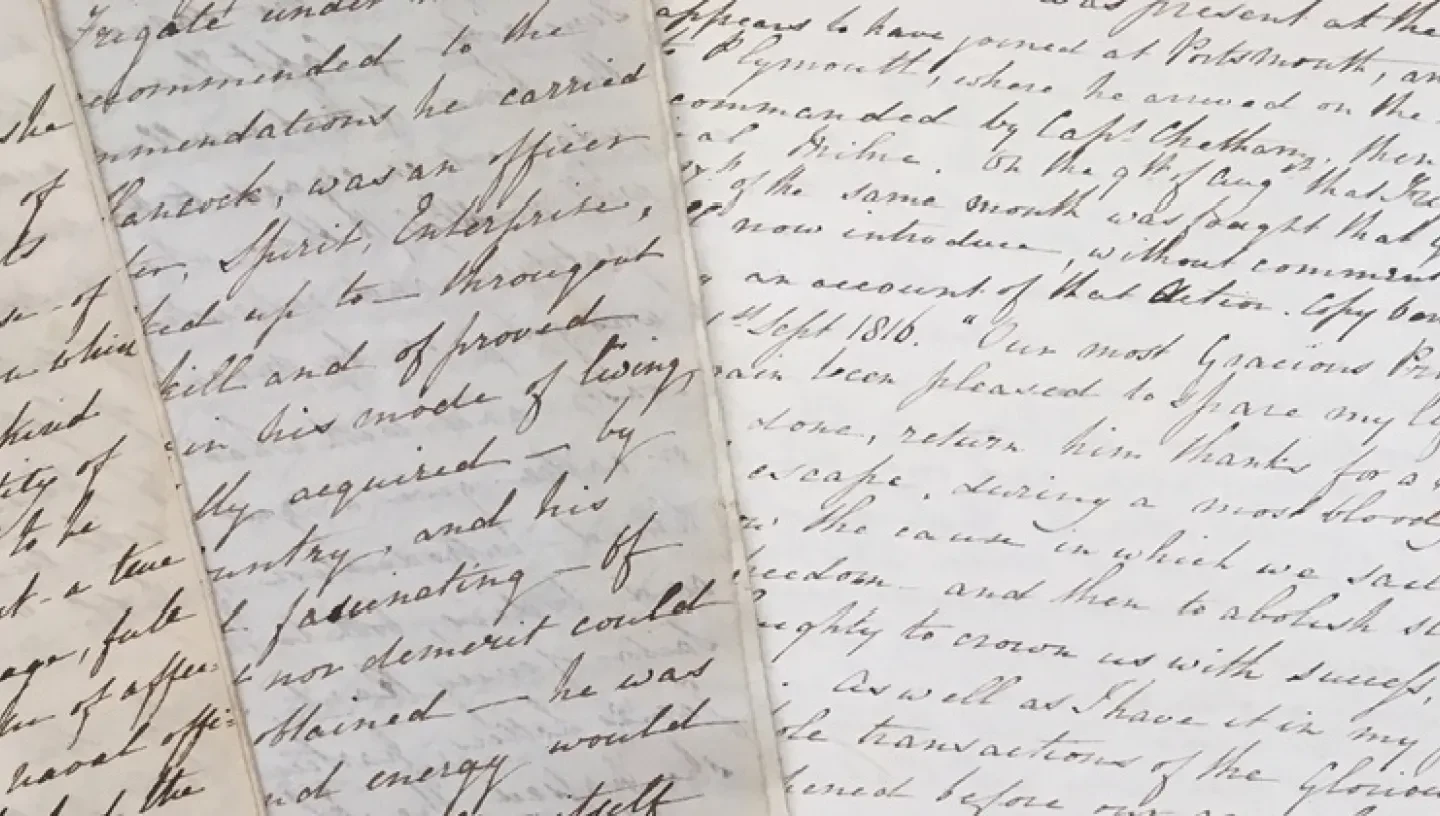 she
of
ts
se - of
n which
kind
tity of
to be
t - a true
age, full
of affec-
naval offi-
the
Frigate under
recommended to the
mmendations he carried
Hancock, was an officer
ter, Spirit, Enterprise,
ked up to — througout
kill and of proved
in his mode of living,
lly acquired — by
untry, and his
t fascinating — of
nor demerit could
obtained — he was
nd energy would
itself
was present at the
appears to have joined at Portsmouth, an
to Plymouth, where he arrived on the
commanded by Capt Chetham, then
al Milne. On the 9th of Augst that
of the same month was fought that g
now introduce, without comment
an account of that Action. Copy
1st Sept 1816. "Our most Gracious Pr
gain been pleased to spare my li
done, return him thanks for a
escape, during a most bloody
the cause in which we sail
reedom and then to abolish sl
ughty to crown us with success,
As well as I have it in my p
ole transactions of the Gloriou
pened before our